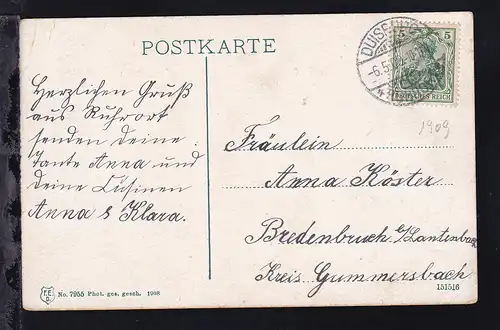 POSTKARTE
5 5
DUISBURG
-6.5.
DEUTSCHES REICH
1909
Herzlichen Gruß
aus Ruhrort
senden deine
Tante Anna und
deine Cusinen
Anna & Klara.
Fräulein
Anna Köster
Bredenbruch b/Lantenbach
Kreis Gummersbach
No. 7955 Phot. ges. gesch. 1908
151516